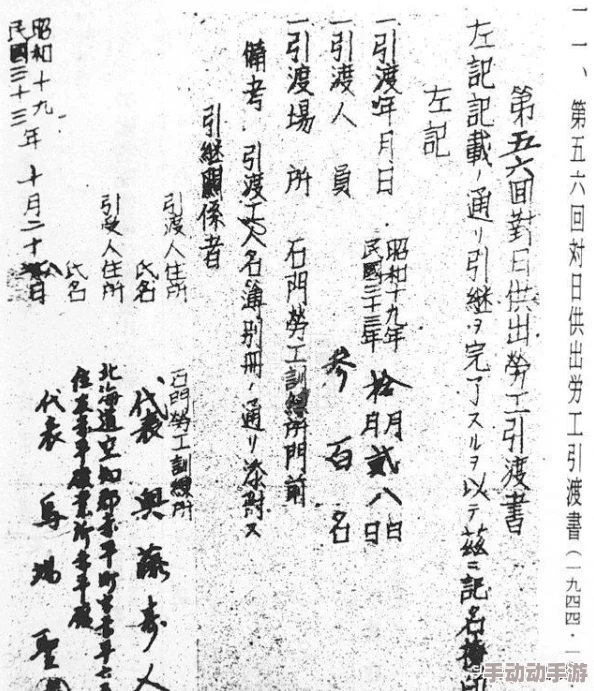 一一、第五六回対日供出労工引渡書(一九四四·一
第五六回對日供出勞工引渡書
左記記載ノ通リ引継ヲ完了スルヲ以テ茲ニ記名捺印
左記
一引渡年月日 昭和十九年 民國三十三年 拾月貳八日
一引渡人員 參百名
一引渡場所 石門勞工訓練所門前
備考 引渡工人名簿別冊ノ通リ添附ス
引継關係者
引渡人住所 石門勞工訓練所
氏名 代表
引受人住所 北海道空知郡赤平町
氏名 代表 馬場
昭和十九
民國三十三年 十月二十八日
手动动手游